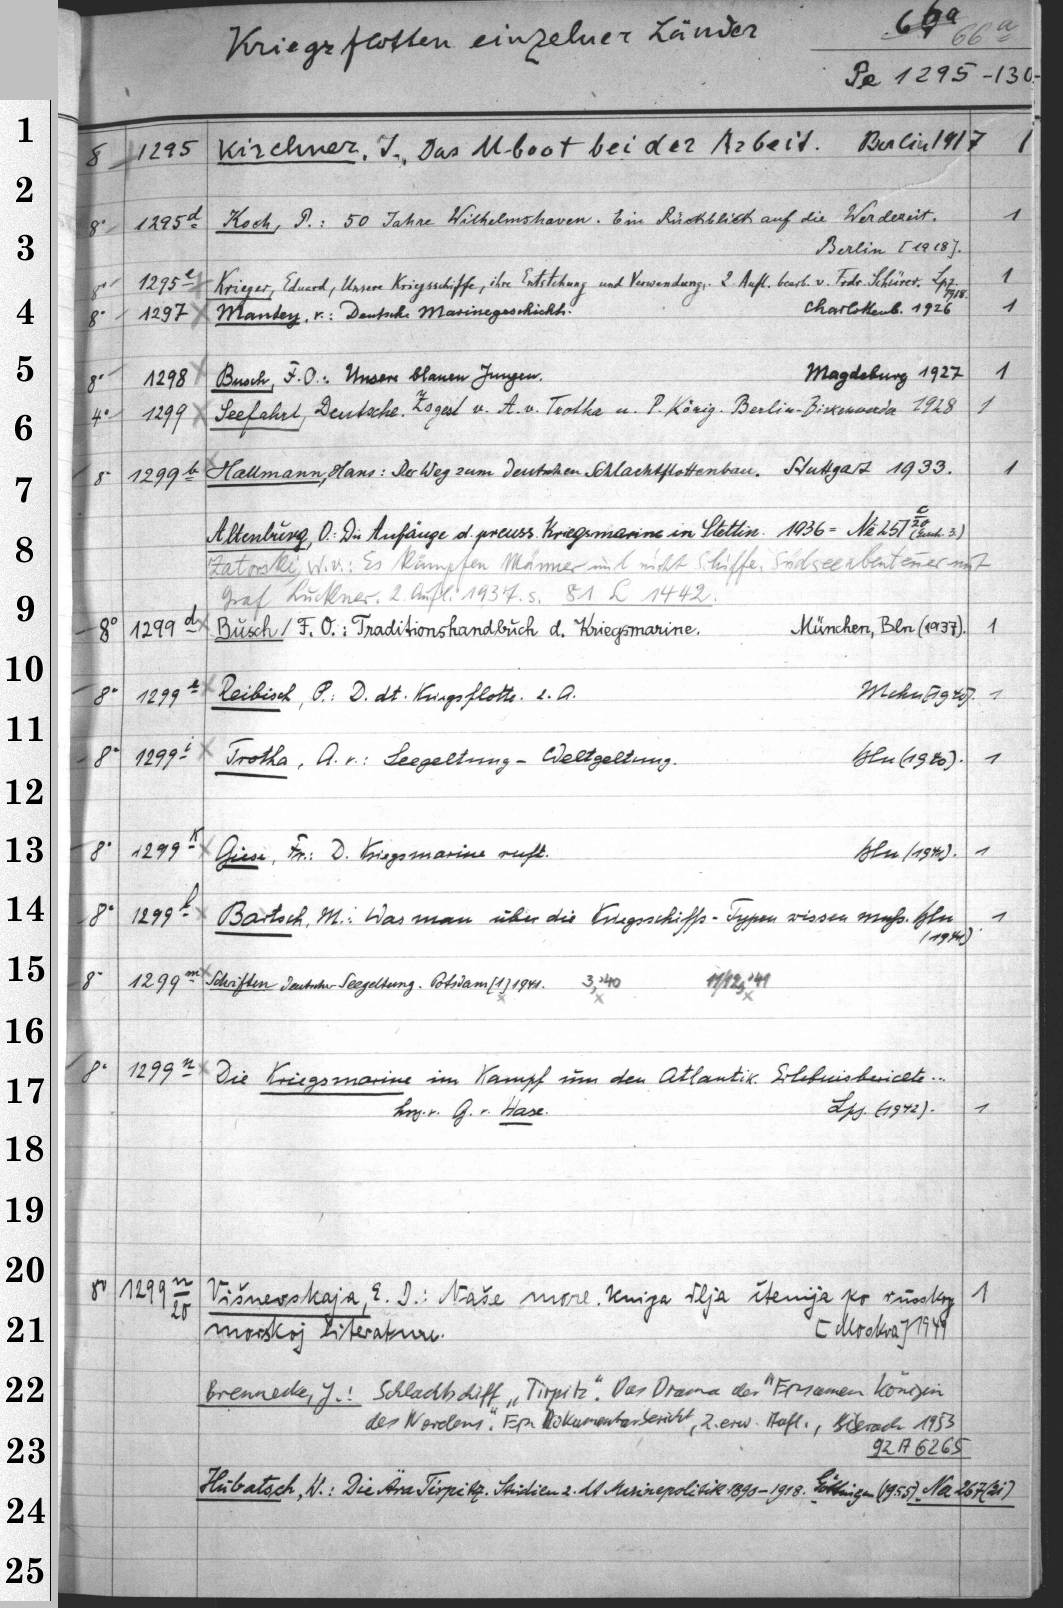 Kriegsflotten einzelner Länder 66a 66a
Pe 1295-130
1
8 1295 Kirchner, J., Das U-boot bei der Arbeit. Berlin 1917 1
2
8° 1295d Koch, P.: 50 Jahre Wilhelmshaven. Ein Rückblick auf die Werdezeit. 1
3
Berlin [1918].
8° 1295e Krieger, Eduard, Unsere Kriegsschiffe, ihre Entstehung und Verwendung. 2 Aufl. bearb. v. Frdr. Schürer. Lpz. 1918. 1
4
8° 1297 Mantey, v.: Deutsche Marinegeschichte. Charlottenb. 1926 1
5
8° 1298 Busch, F.O.: Unsere blauen Jungen. Magdeburg 1927 1
6
4° 1299 Seefahrt, Deutsche. Zsgest v. A. v. Trotha u. P. König. Berlin-Birkenwerda 1928 1
7
8° 1299b Hallmann, Hans: Der Weg zum deutschen Schlachtflottenbau. Stuttgart 1933. 1
8
Altenburg, O: Die Anfänge d. preuss. Kriegsmarine in Stettin. 1936 = Ne 251 c/20
Zatorski, W.v.: Es kämpfen Männer und nicht Schiffe. Südseeabenteuer mit
9
Graf Luckner. 2 Aufl. 1937. s. 81 L 1442.
8° 1299d Busch, F.O.: Traditionshandbuch d. Kriegsmarine. München, Bln (1937). 1
10
8° 1299 Reibisch, P.: D. dt. Kriegsflotte. 2. A. Mchn [1940]. 1
11
8° 1299i Trotha, A. v.: Seegeltung - Weltgeltung. Bln (1940). 1
12
13
8° 1299k Giese, Fr.: D. Kriegsmarine ruft. Bln (1941). 1
14
8° 1299l Bartsch, M.: Was man über die Kriegsschiffs-Typen wissen muß. Bln 1
(1941)
15
8° 1299m Schriften deutscher Seegeltung. Potsdam [1] 1941. 3,'40 11/12,'41
x x
16
17
8° 1299n Die Kriegsmarine im Kampf um den Atlantik. Erlebnisberichte...
hrg. v. G. v. Hase. Lpz. (1942). 1
18
19
20
8° 1299 n/20 Višnevskaja, E. D.: Naše more. Kniga dlja čtenija po russkoj 1
21
morskoj literature. [Moskva] 1949
22
Brennecke, J.: Schlachtschiff „Tirpitz". Das Drama der "Einsamen Königin
des Nordens". Ein Dokumentarbericht, 2. erw. Aufl., Biberach 1953
23
92 A 6265
24
Hubatsch, W.: Die Ära Tirpitz. Studien z. dt Marinepolitik 1890-1918. Göttingen (1955). Na 267(21)
25